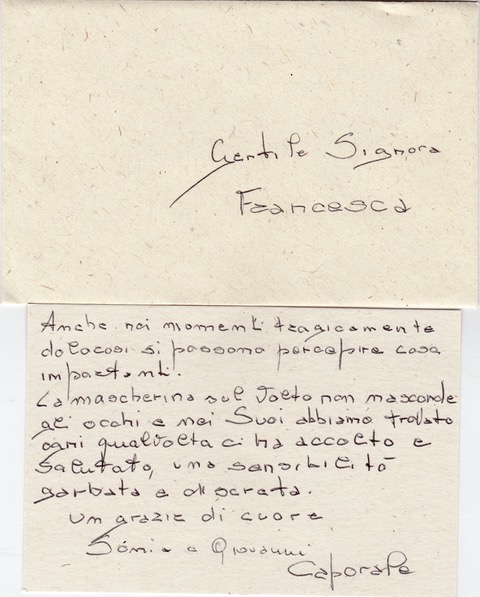 Gentile Signora
Francesca
Anche nei momenti tragicamente
dolorosi si possono percepire cose
importanti.
La mascherina sul volto non nasconde
gli occhi e nei Suoi abbiamo trovato
ogni qualvolta ci ha accolto e
salutato, una sensibilità
garbata e discreta.
Un grazie di cuore
Sónia e Giovanni
Caporale